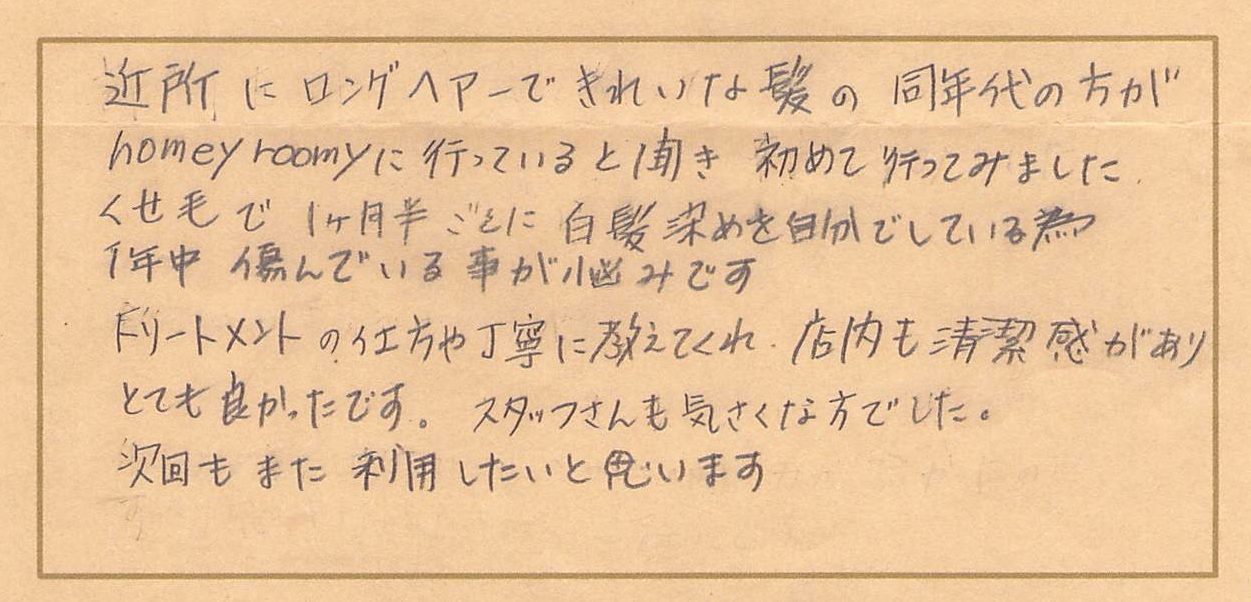 近所に ロングヘアーできれいな髪の 同年代の方が
homey roomyに行っていると聞き 初めて行ってみました.
くせ毛で 1ヶ月半ごとに 白髪染めを自分でしている為
1年中 傷んでいる事が悩みです
トリートメントの仕方や丁寧に教えてくれ. 店内も清潔感があり
とても良かったです。 スタッフさんも気さくな方でした。
次回もまた 利用したいと思います